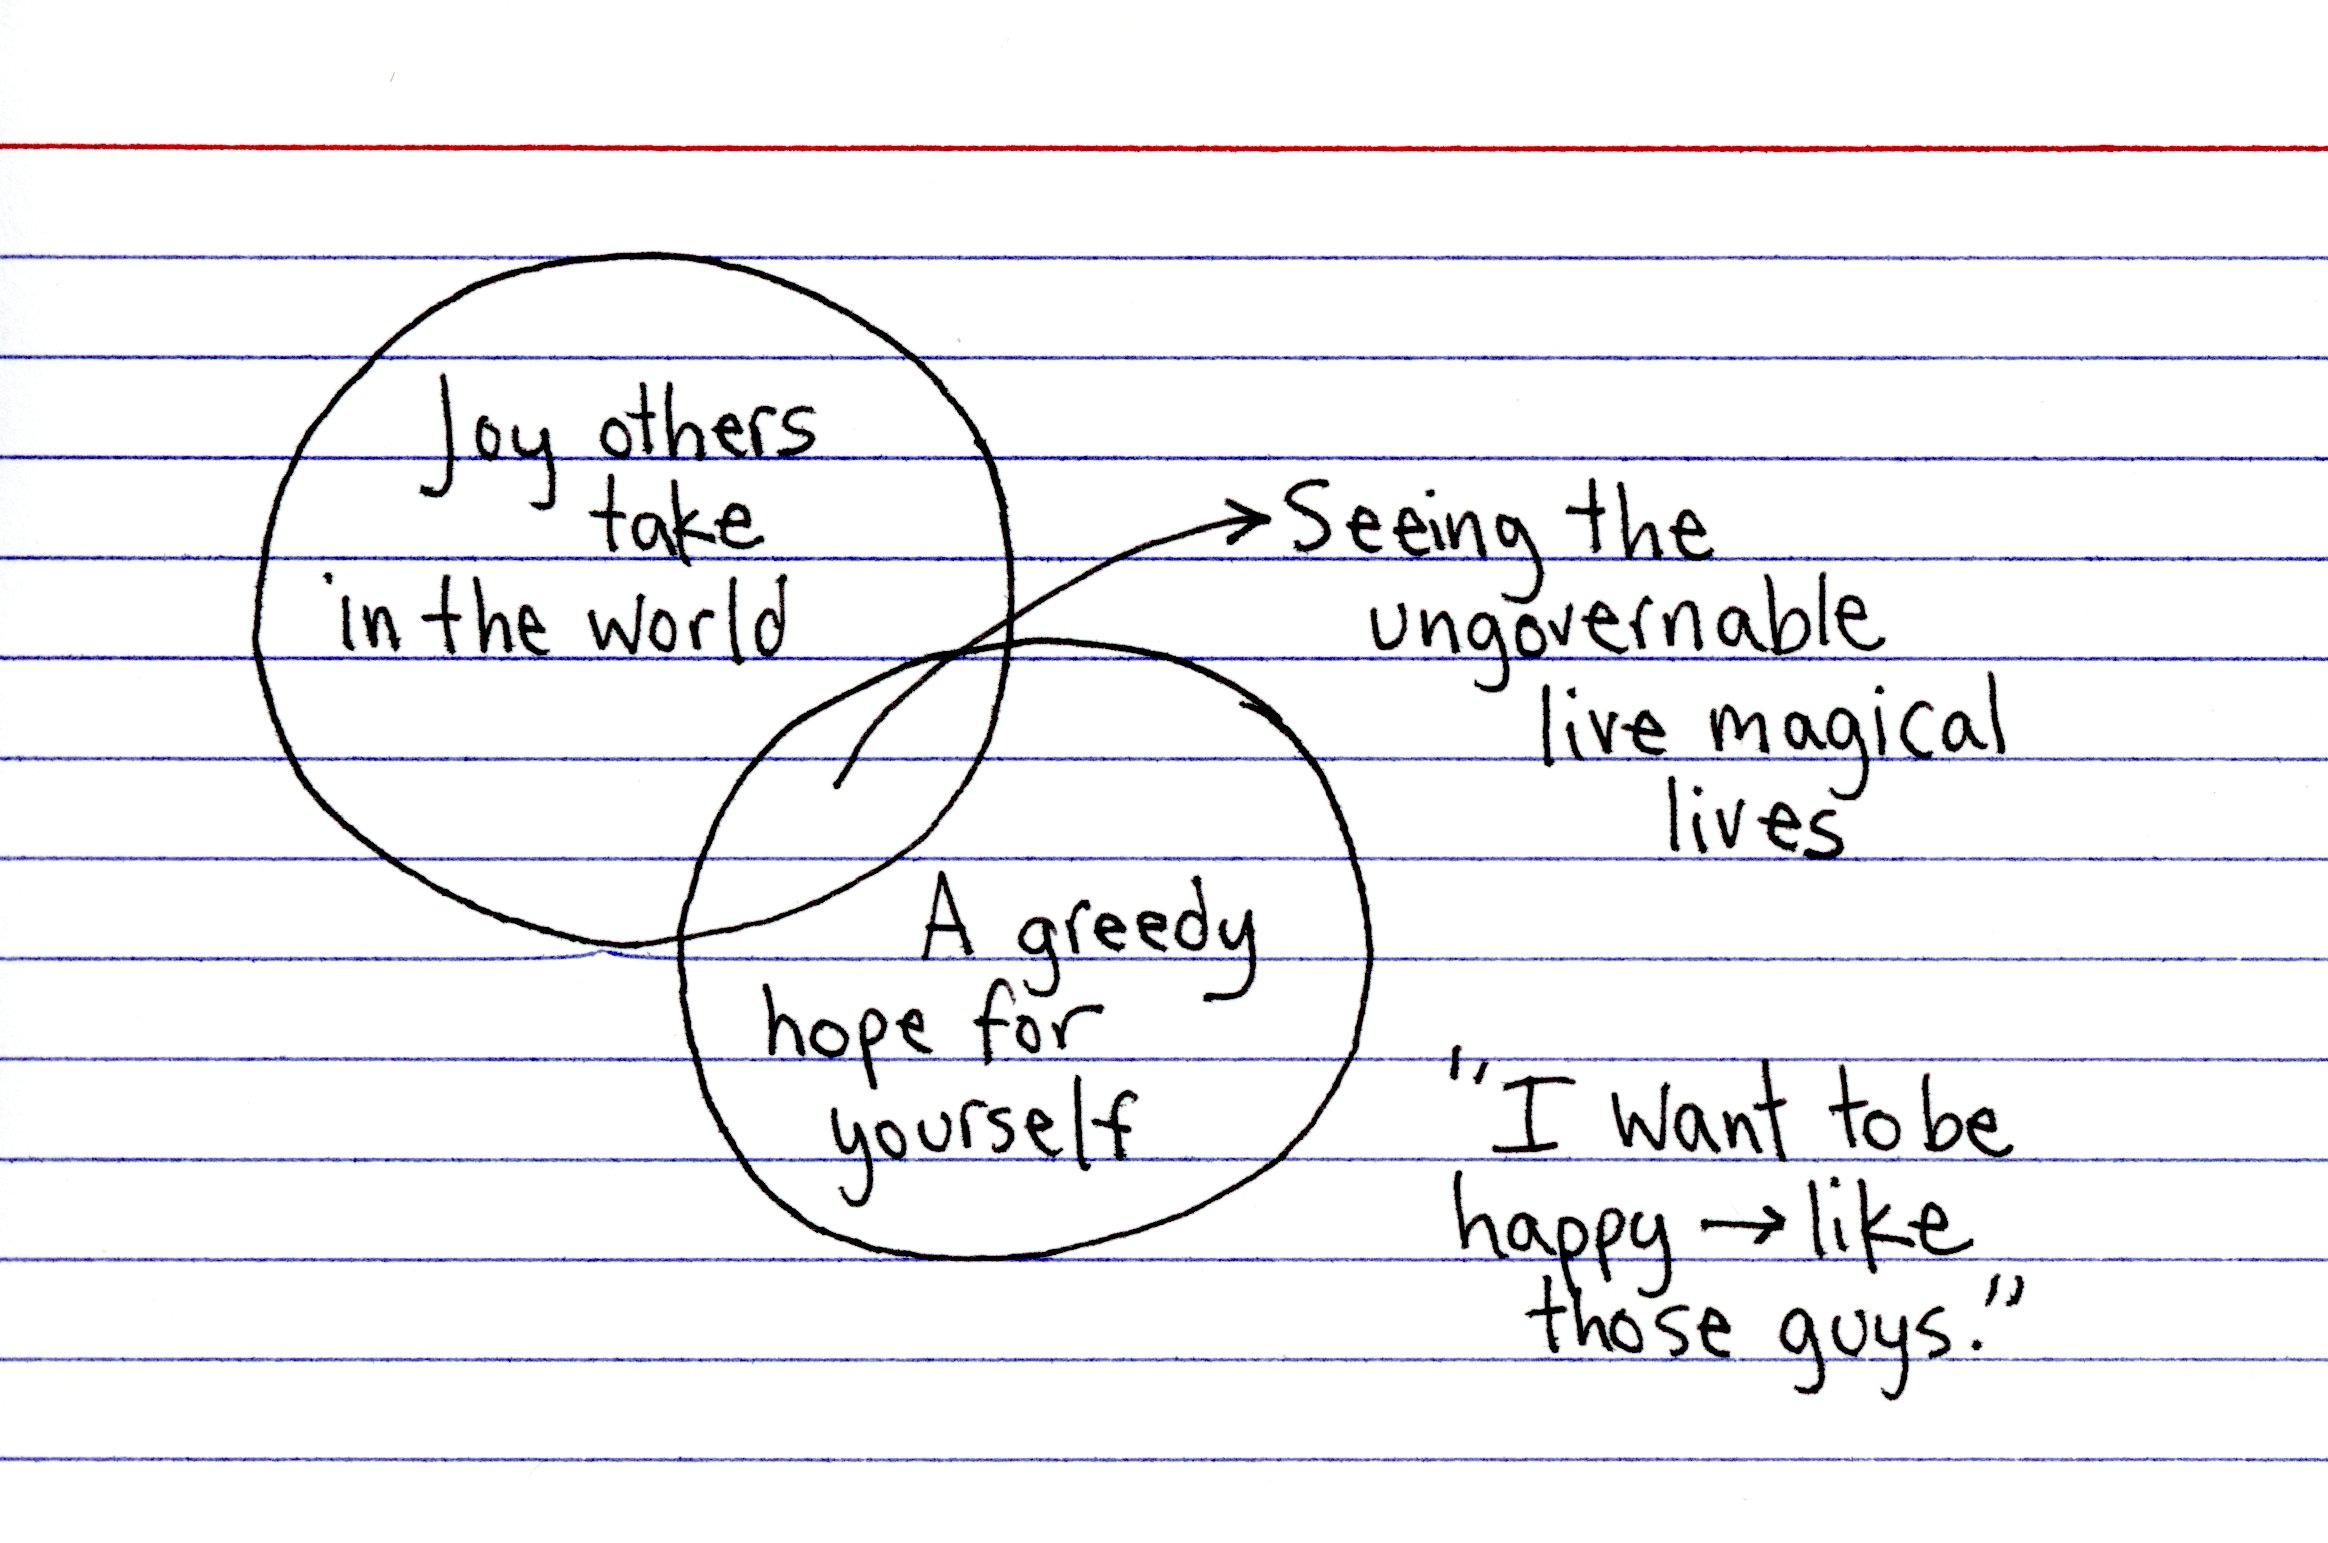 Joy others
take
in the world
Seeing the
ungovernable
live magical
lives
A greedy
hope for
yourself
"I want to be
happy → like
those guys."